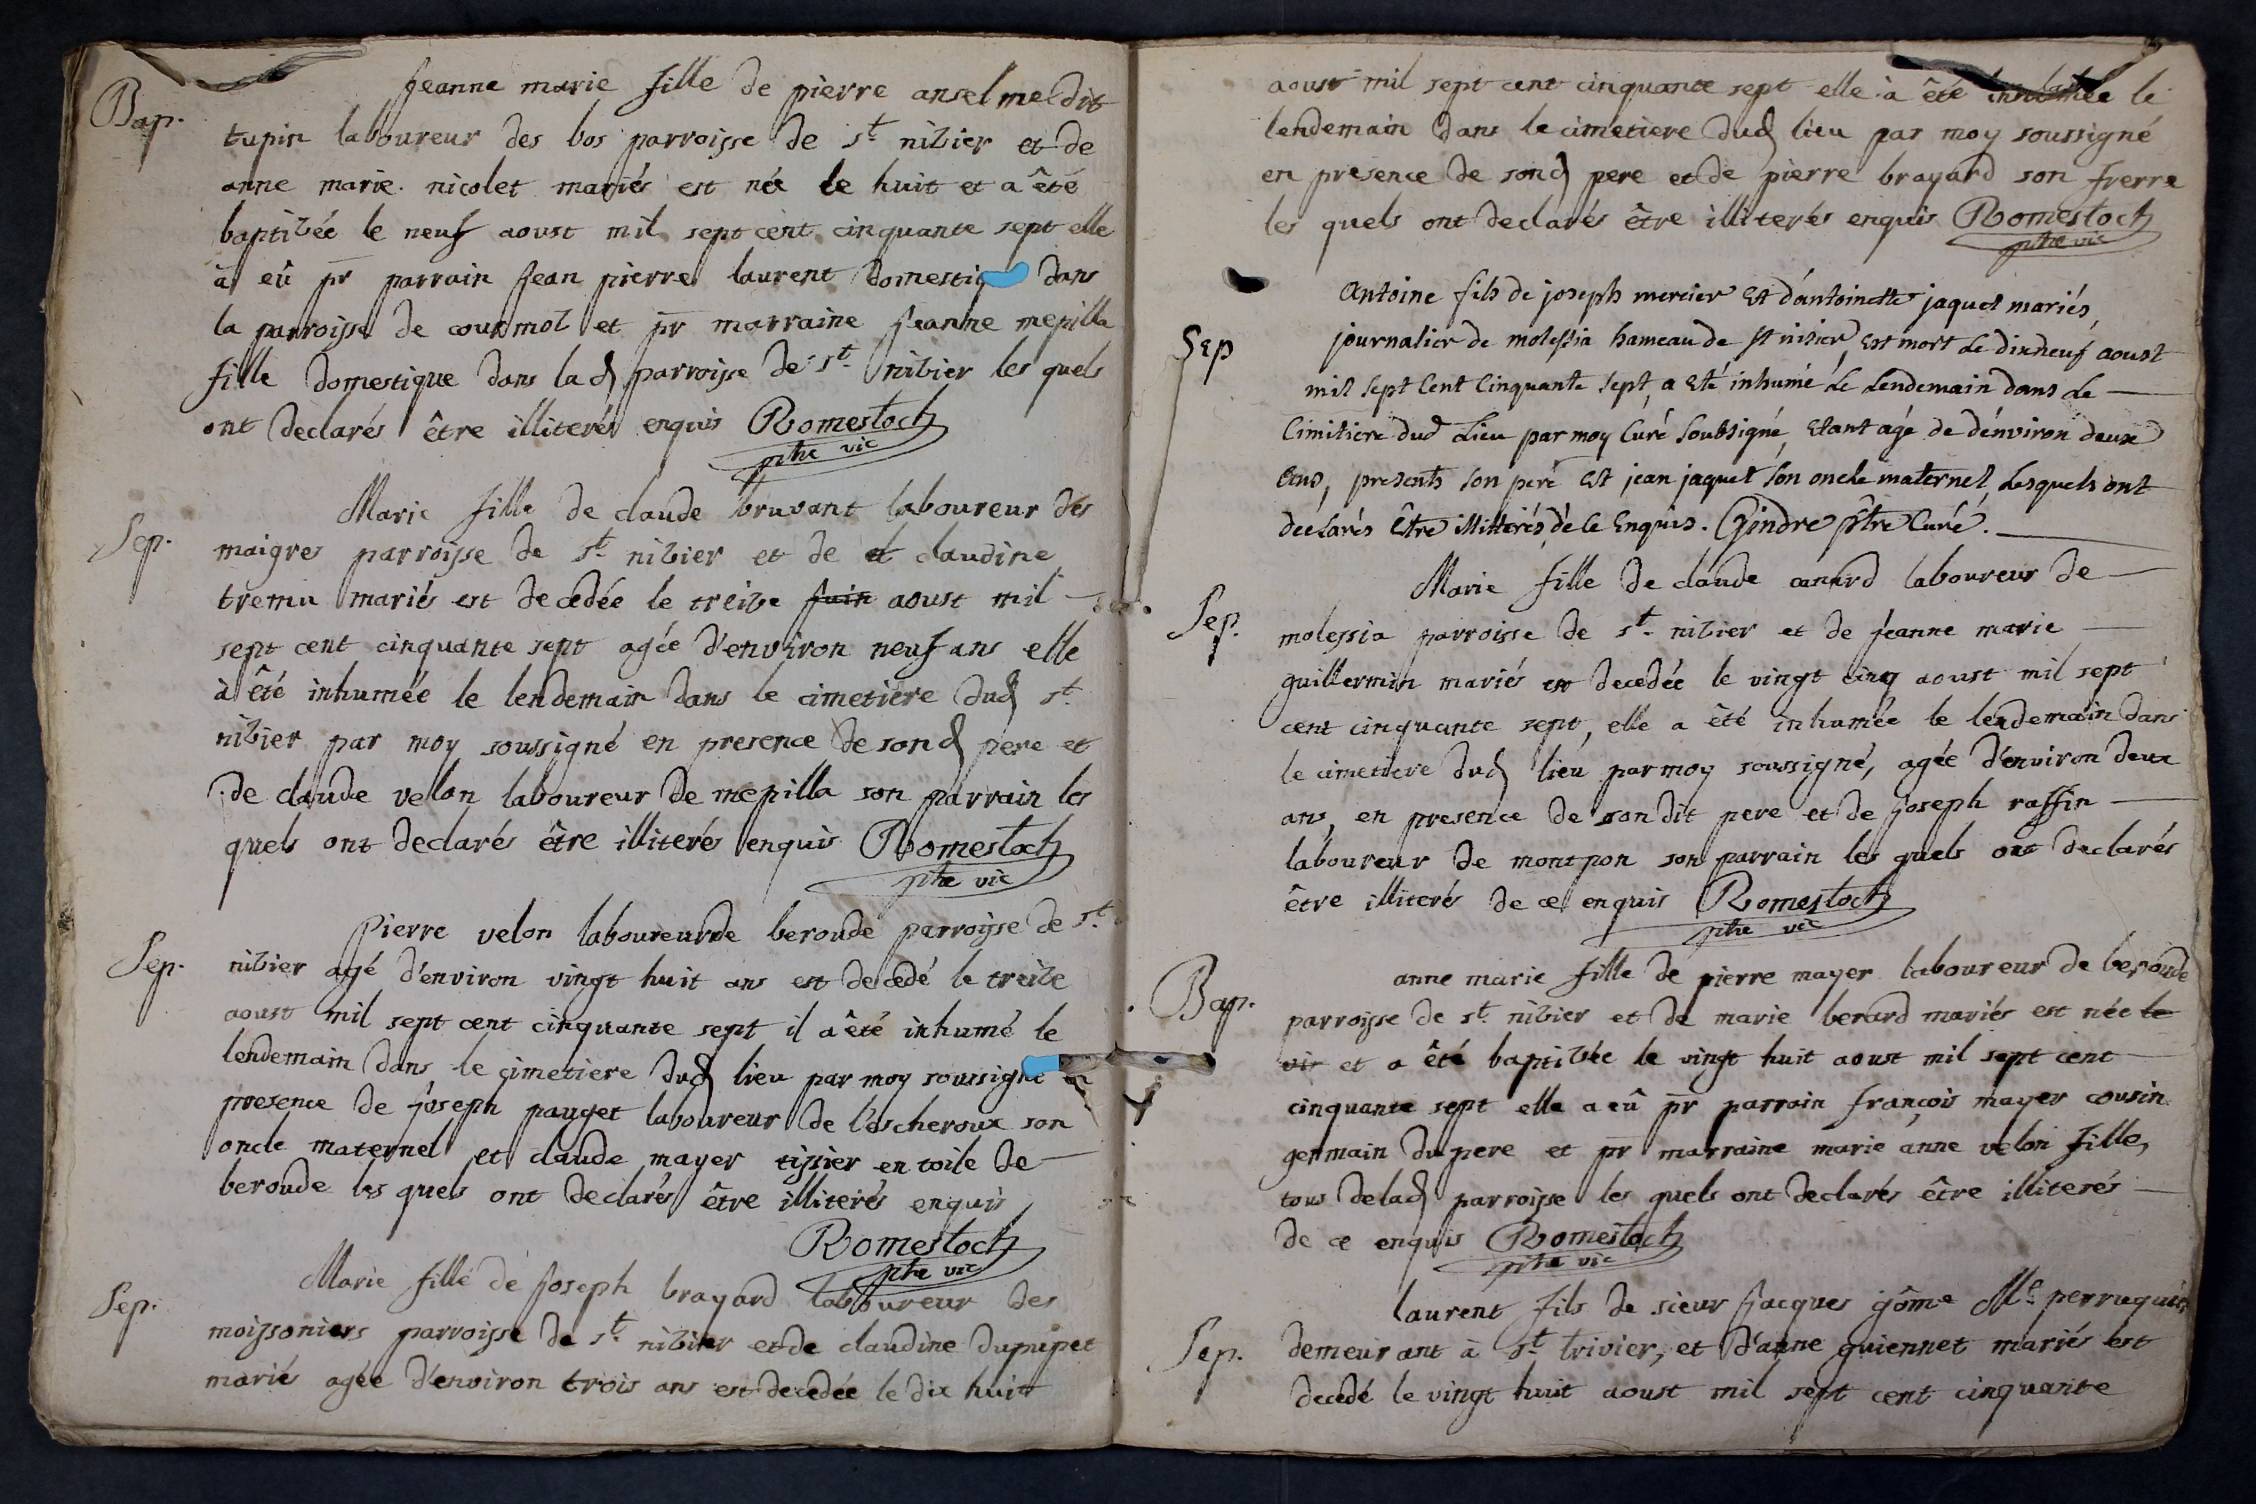 Bap.
Jeanne marie fille de pierre anselme dit
tupin laboureur des bos parroisse de st nizier et de
anne marie nicolet mariés est née le huit et a êté
baptizée le neuf aoust mil sept cent cinquante sept elle
à eû pr parrain Jean pierre laurent domestiq dans
la parroisse de courmoz et pr marraine Jeanne mepilla
fille domestique dans lad parroisse de st nizier les quels
ont declarés être illiterés enquis Romestoch
ptre vic
Sep.
Marie fille de claude bruvant laboureur des
maigres parroisse de st nizier et de et claudine
tremu mariés est decedée le treize juin aoust mil
sept cent cinquante sept agée d'environ neuf ans elle
à êté inhumée le lendemain dans le cimetière dud st
nizier par moy soussigné en presence de sond pere et
de claude velon laboureur de mepilla son parrain les
quels ont declarés être illiterés enquis Romestoch
ptre vic
Sep.
Pierre velon laboureur de beroude parroisse de st
nizier agé d'environ vingt huit ans est decedé le treize
aoust mil sept cent cinquante sept il a êté inhumé le
lendemain dans le cimetiere dud lieu par moy soussigné
presence de joseph pauget laboureur de l'escheroux son
oncle maternel et claude mayer tissier en toile de
beroude les quels ont declarés être illiterés enquis
Romestoch
ptre vic
Sep.
Marie fille de Joseph brayard laboureur des
moissoniers parroisse de st nizier et de claudine dupupet
mariés agée d'environ trois ans est decedée le dix huit
aoust mil sept cent cinquante sept elle à êté inhumée le
lendemain dans le cimetiere dud lieu par moy soussigné
en presence de sond pere et de pierre brayard son frerre
les quels ont declarés être illiterés enquis Romestoch
ptre vic
Sep
Antoine fils de joseph mercier Et d'antoinette jaquet mariés,
journalier de molessia hameau de st nisier, Est mort Le dixneuf aoust
mil Sept Cent Cinquante Sept, a Eté inhumé Le Lendemain dans Le
Cimitiere dud Lieu par moy Curé Soubsigné, Etant agé de d'énviron deux
ans, presents Son peré Et jean jaquet Son oncle maternel, Lesquels ont
déclarés Être illitterés, de Ce Enquis. Gindre ptre Curé.
Sep.
Marie fille de claude canard laboureur de
molessia parroisse de st nizier et de jeanne marie
guillermin mariés est decedée le vingt cinq aoust mil sept
cent cinquante sept, elle a êté inhumée le lendemain dans
le cimetiere dud lieu par moy soussigné, agée d'environ deux
ans, en presence de son dit pere et de joseph raffin
laboureur de montpon son parrain les quels ont declarés
être illiterés de ce enquis Romestoch
ptre vic
Bap.
anne marie fille de pierre mayer laboureur de beroude
parroisse de st nizier et de marie berard mariés est née le
vin et a êté baptizée le vingt huit aoust mil sept cent
cinquante sept elle a eû pr parrain françois mayer cousin
germain du pere et pr marraine marie anne velon fille,
tous de lad parroisse les quels ont declarés être illiterés
de ce enquis Romestoch
ptre vic
Sep.
laurent fils de sieur Jacques gôme Me perruquier
demeurant à st trivier, et d'anne guiennet mariés est
decedé le vingt huit aoust mil sept cent cinquante